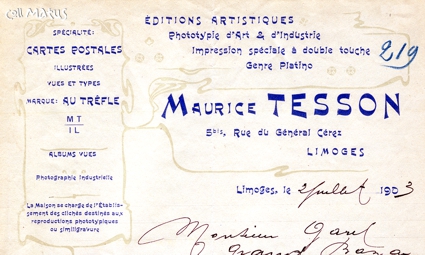 Coll MARUS
SPÉCIALITÉ:
CARTES POSTALES
ILLUSTRÉES
VUES ET TYPES
MARQUE: AU TRÈFLE
MT
IL
ALBUMS VUES
Photographie Industrielle
La Maison se charge de l'Établis-
sement des clichés destinés aux
reproductions phototypiques
ou similigravure
ÉDITIONS ARTISTIQUES
Phototypie d'Art & d'Industrie
Impression spéciale à double touche
Genre Platino
219
MAURICE TESSON
5bis, Rue du Général Cérez
LIMOGES
Limoges, le 2 juillet 1903
Monsieur
Grand